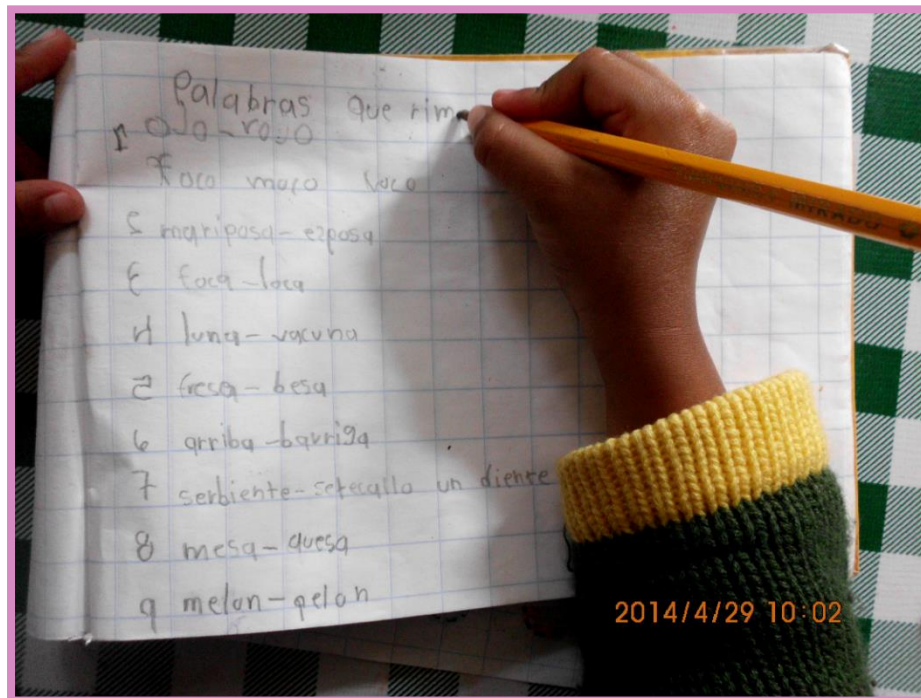 Palabras que rim
1 ojo-rojo
foco moco loco
2 mariposa-ezposa
3 foca-loca
4 luna-vacuna
5 fresa-besa
6 arriba-barriga
7 serbiente-setecallo un diente
8 mesa-quesa
9 melon-pelon
2014/4/29 10:02